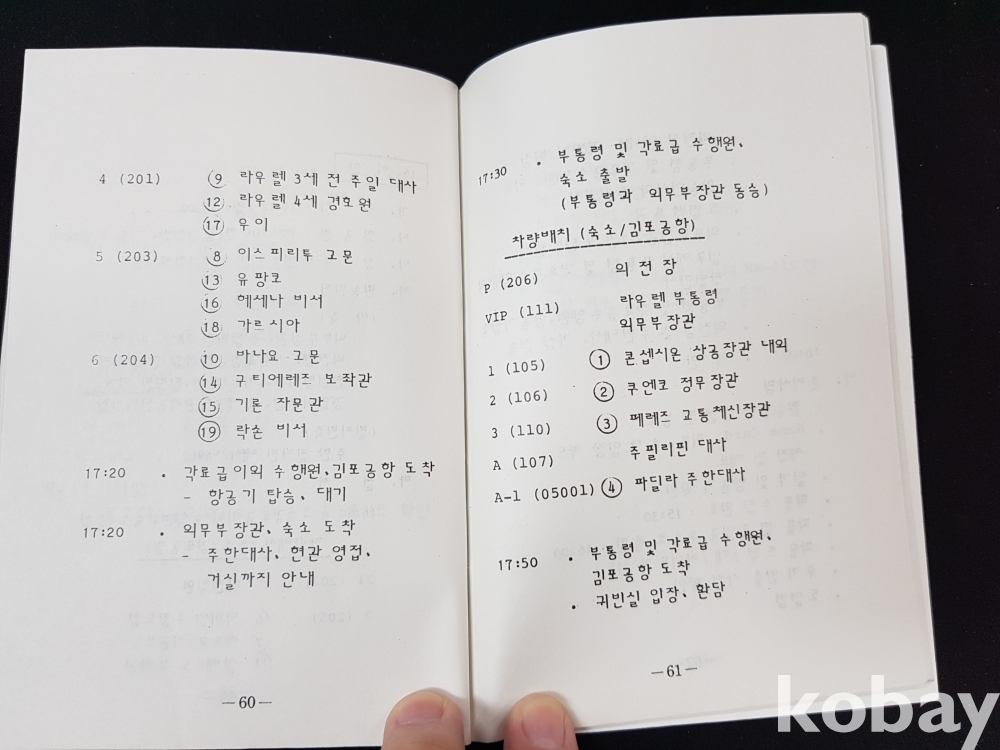 4 (201) ⑨ 라우렐 3세 전 주일 대사
⑫ 라우렐 4세 경호원
⑰ 우이
5 (203) ⑧ 이스피리투 고문
⑬ 유팡코
⑯ 헤세나 비서
⑱ 가르시아
6 (204) ⑩ 바나요 고문
⑭ 구티에레즈 보좌관
⑮ 기론 자문관
⑲ 락손 비서
17:20 · 각료급이외 수행원, 김포공항 도착
- 항공기 탑승, 대기
17:20 · 외무부장관, 숙소 도착
- 주한대사, 현관 영접,
거실까지 안내
—60—
17:30 · 부통령 및 각료급 수행원,
숙소 출발
(부통령과 외무부장관 동승)
차량배치 (숙소/김포공항)
P (206) 의전장
VIP (111) 라우렐부통령
외무부장관
1 (105) ① 콘셉시온 상공장관 내외
2 (106) ② 쿠엔코 정무장관
3 (110) ③ 페레즈 교통체신장관
A (107) 주필리핀 대사
A-1 (05001) ④ 파딜라 주한대사
17:50 · 부통령 및 각료급 수행원,
김포공항 도착
· 귀빈실 입장, 환담
—61—
kobay